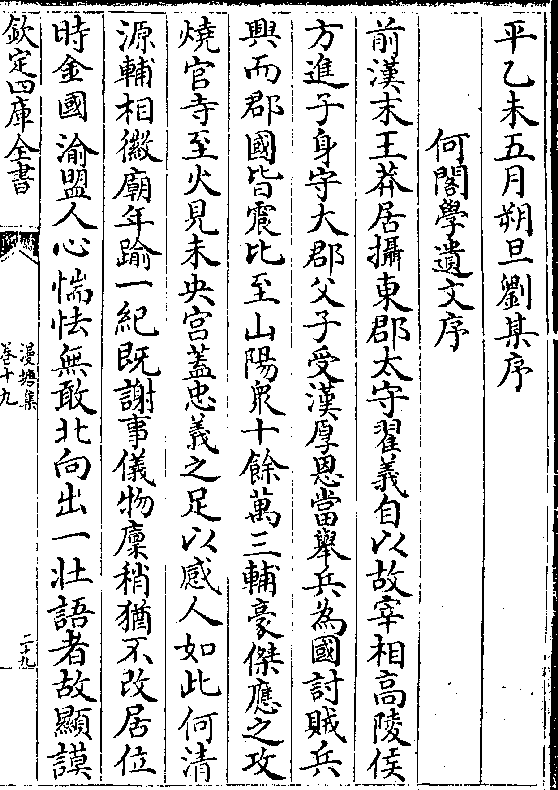 平乙未五月朔旦劉某序
何閣學遺文序
前漢末王莽居攝東郡太守翟義自以故宰相髙陵侯
方進子身守大郡父子受漢厚恩當舉兵為國討賊兵
興而郡國皆震比至山陽衆十餘萬三輔豪傑應之攻
燒官寺至火見未央宫蓋忠義之足以感人如此何清
源輔相徽廟年踰一紀既謝事儀物廩稍猶不改居位
時金國渝盟人心惴怯無敢北向出一壯語者故顯謨
欽定四庫全書
漫塘集
卷十九
二十九